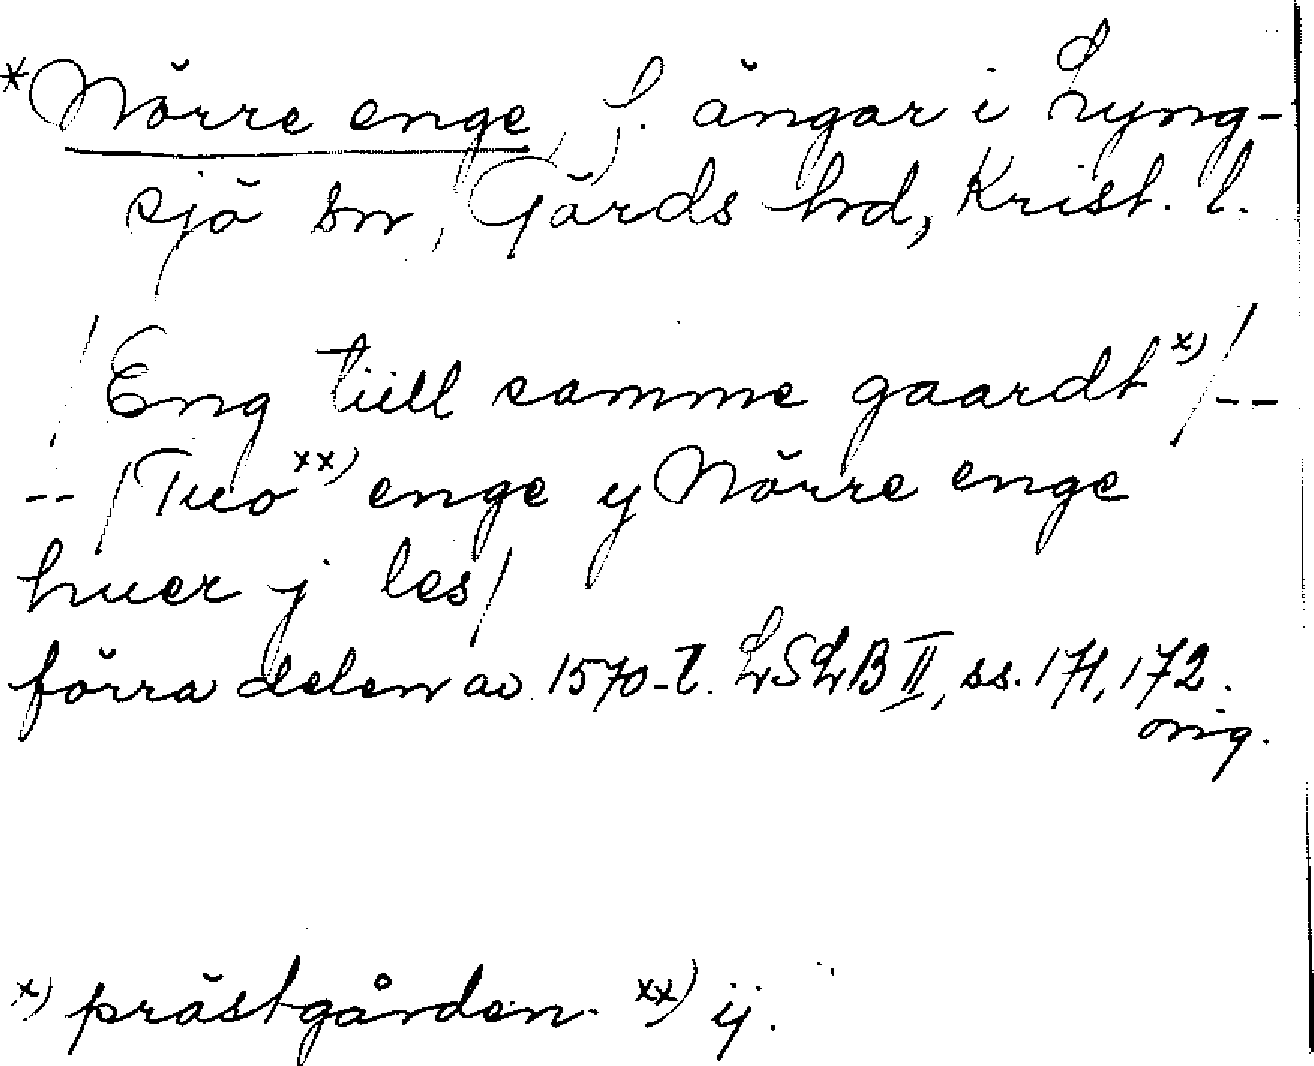 *Nörre enge, f. ängar i Lyng-
sjö sn, Gärds hd, Krist. l.
/Eng tiill samme gaardt x)/--
--/Tuo xx) enge y Nörre enge
huer j les/
förra delen av 1570-t. LSLB II, ss. 171, 172.
orig.
x) prästgården. xx) ij.